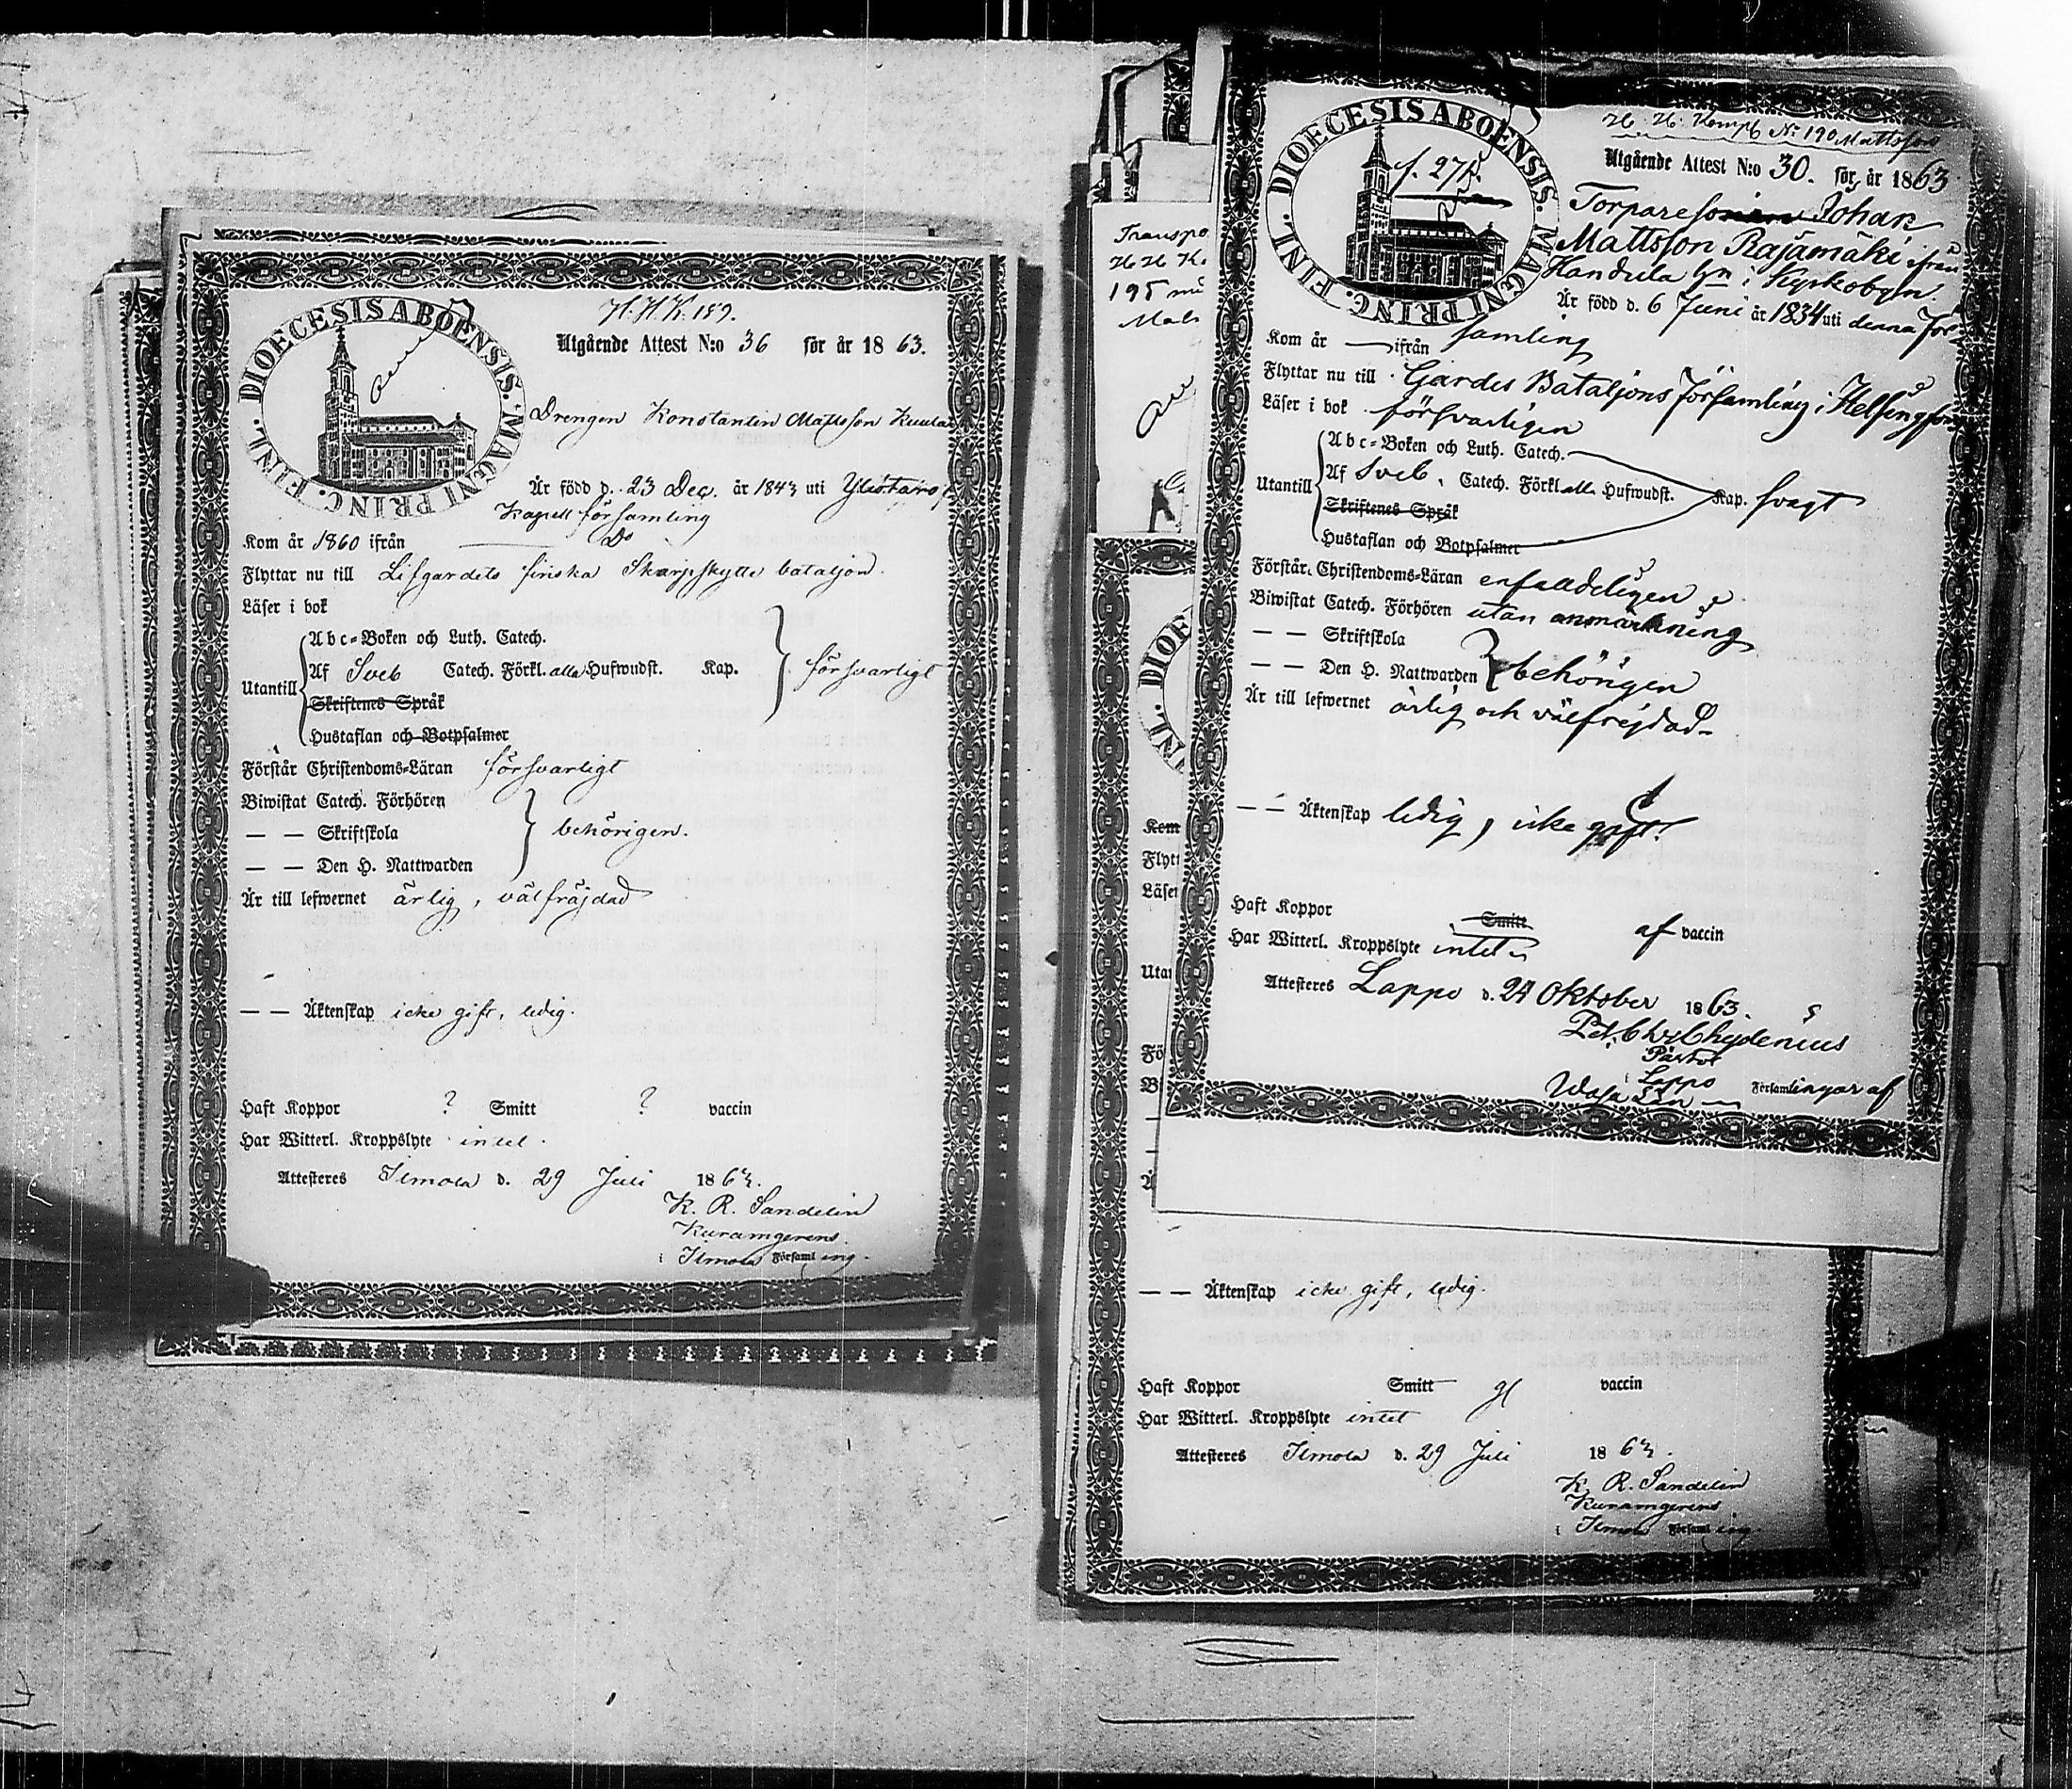 H. H. K. 189.
DIOECESIS ABOENSIS. MAGNI PRINC. FINL.
Utgående Attest N:o 36 för år 1863.
Drengen Konstantin Mattsson
Är född d. 23 Dec. år 1843 uti Ylistaro
Kapell församling
Kom år 1860 ifrån Do
Flyttar nu till Lifgardets finska Skarpskytte bataljon.
Läser i bok
Abc-Boken och Luth. Catech.
Utantill Af Sveb Catech. Förkl. alla Hufwudst. Kap. försvarligt
Skriftenes Språk
Hustaflan och Botpsalmer
Förstår Christendoms-Läran försvarligt
Biwistat Catech. Förhören
— — Skriftskola behörigen.
— — Den H. Nattwarden
Är till lefwernet ärlig, välfräjdad
— — Äktenskap icke gift, ledig.
Haft Koppor ? Smitt ? vaccin
Har Witterl. Kroppslyte intet.
Attesteres Ilmola d. 29 Juli 1863.
K. R. Sandelin
Kuramgerens.
i Ilmola Församling.
Transpo
H H K.
195
H. H. Kompt No 190 Mattsson
DIOECESIS ABOENSIS. MAGNI PRINC. FINL.
Utgående Attest N:o 30. för år 1863
Torpare Johan
Mattsson Rajamäki ifrån
Handula hn i Kyrkobyn.
Är född d. 6 Juni år 1834 uti denna För
samling
Kom år — ifrån
Flyttar nu till Gardes Bataljons Församling i Helsingfors
Läser i bok försvarligen
Abc-Boken och Luth. Catech.
Utantill Af Sveb. Catech. Förkl alla Hufwudst. Kap. svagt
Skriftenes Språk
Hustaflan och Botpsalmer
Förstår Christendoms-Läran enfaldeligen
Biwistat Catech. Förhören utan anmärkning
— — Skriftskola
— — Den H. Nattwarden behörigen
Är till lefwernet ärlig och välfrejdad
— — Äktenskap ledig, icke gift.
Haft Koppor Smitt af vaccin
Har Witterl. Kroppslyte intet
Attesteres Lappo d. 24 Oktober 1863.
Pet. Chr. Chydenius
Pastor
i Lappo Församlingar af
Wasa Län
DIOE
INL.
Kom
Flytt
Läser
Utan
Fö
B
— — Äktenskap icke gift, ledig.
Haft Koppor Smitt vaccin
Har Witterl. Kroppslyte intet
Attesteres Ilmola d. 29 Juli 1863.
K. R. Sandelin
Kuramgerens
i Ilmola Församling